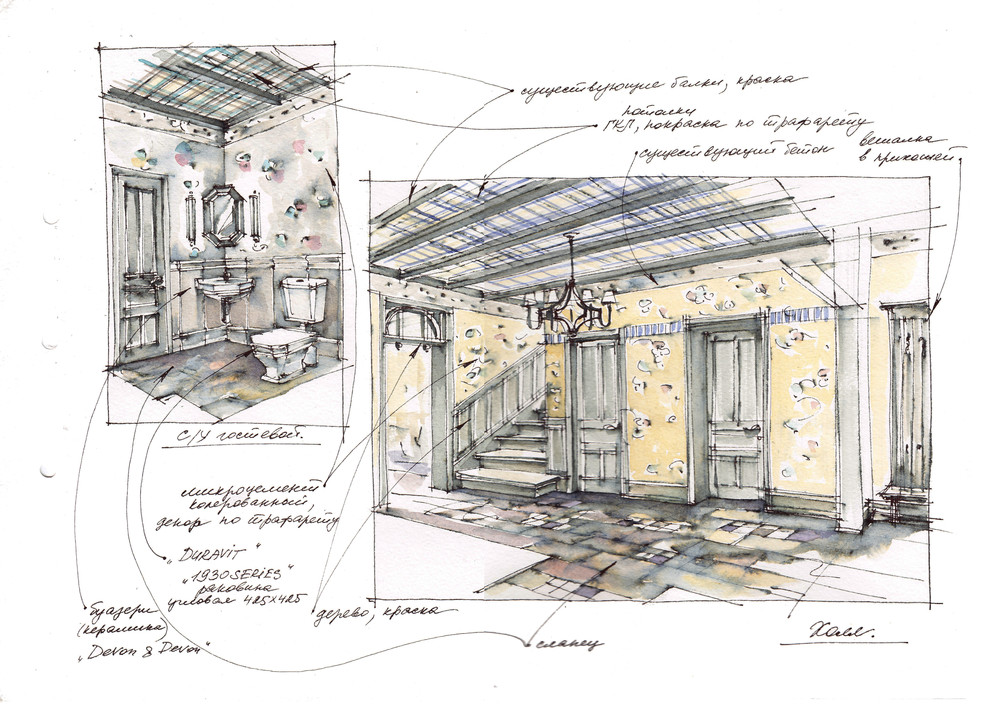 существующие балки, краска
потолки
ГКЛ, покраска по трафарету
существующий бетон
вешалка
в прихожей
С/У гостевой.
микроцемент
колерованный,
декор по трафарету
„DURAVIT"
„1930 SERIES"
раковина
угловая 425х425
буазери
(керамика)
„Devon & Devon"
дерево, краска
сланец
Холл.